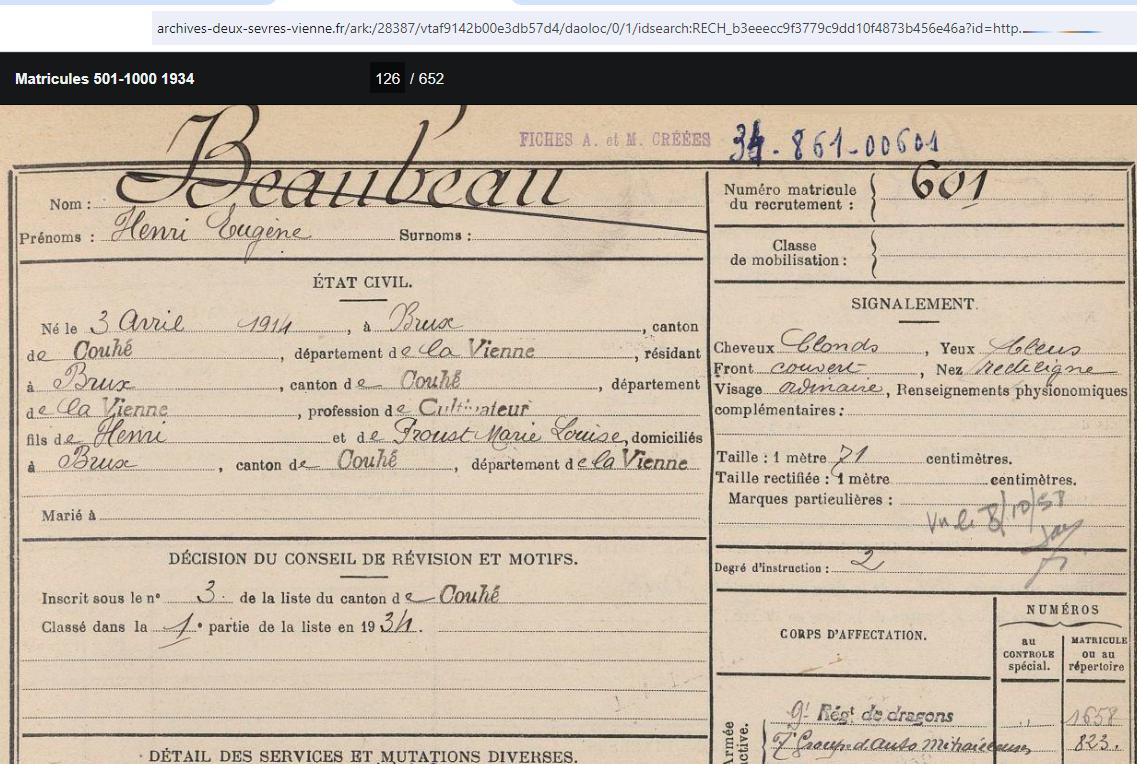 archives-deux-sevres-vienne.fr/ark:/28387/vtaf9142b00e3db57d4/daoloc/0/1/idsearch:RECH_b3eeecc9f3779c9dd10f4873b456e46a?id=http...
Matricules 501-1000 1934 126 / 652
FICHES A. et M. CRÉÉES 34-861-00601
Nom : Beaubeau
Prénoms : Henri Eugène Surnoms :
ÉTAT CIVIL.
Né le 3 Avril 1914, à Brux, canton
de Couhé, département de la Vienne, résidant
à Brux, canton de Couhé, département
de la Vienne, profession de Cultivateur
fils de Henri et de Proust Marie Louise, domiciliés
à Brux, canton de Couhé, département de la Vienne
Marié à
DÉCISION DU CONSEIL DE RÉVISION ET MOTIFS.
Inscrit sous le n° 3. de la liste du canton de Couhé
Classé dans la 1e partie de la liste en 1934.
DÉTAIL DES SERVICES ET MUTATIONS DIVERSES.
Numéro matricule
du recrutement : 601
Classe
de mobilisation :
SIGNALEMENT.
Cheveux blonds, Yeux bleus
Front couvert, Nez rectiligne
Visage ordinaire, Renseignements physionomiques
complémentaires :
Taille : 1 mètre 71 centimètres.
Taille rectifiée : 1 mètre centimètres.
Marques particulières :
Vu le 8/10/58
Degré d'instruction : 2
CORPS D'AFFECTATION.
NUMÉROS
au
CONTROLE
spécial.
MATRICULE
ou au
répertoire
Armée
active.
9e Régt de dragons 1658
7e Groupe d'Auto Mitrailleuses 823.